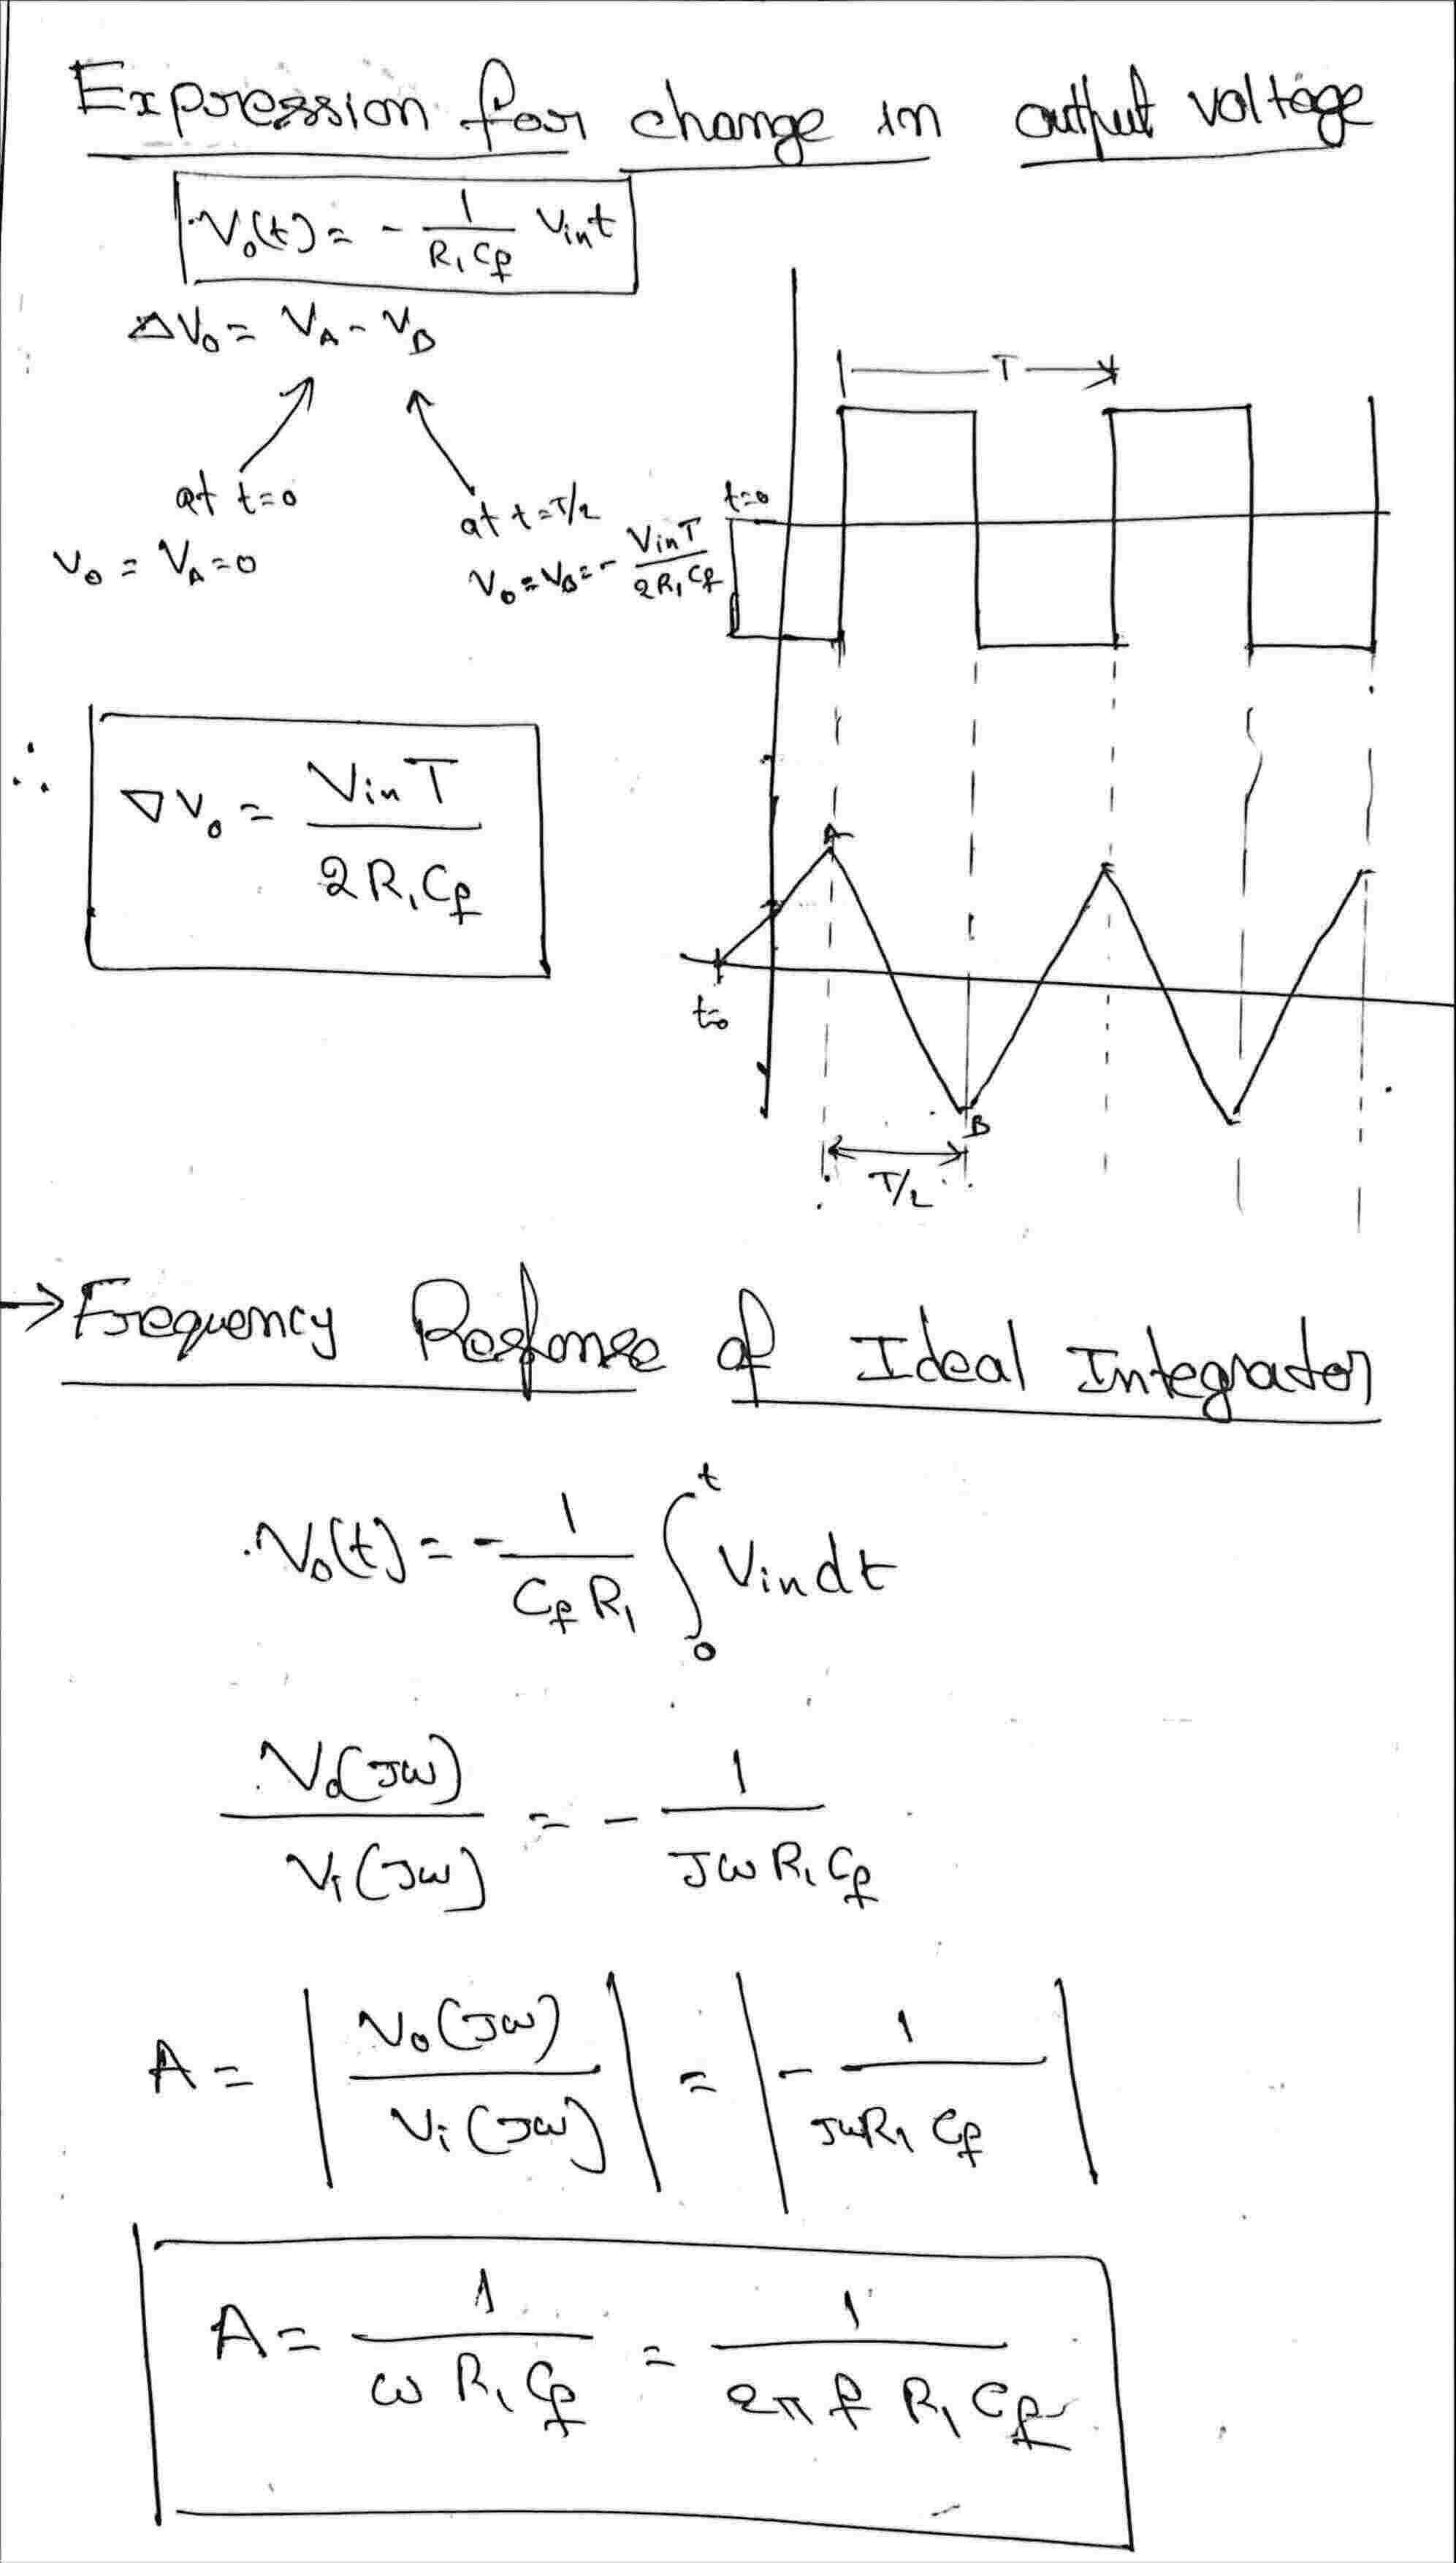 Expression for change in output voltage
V₀(t) = - 1/(R₁Cf) Vin t
ΔV₀ = VA - VB
at t=0
V₀ = VA = 0
at t=T/2
V₀ = VB = - VinT/(2R₁Cf)
T
t=0
∴ ∇V₀ = VinT/(2R₁Cf)
A
t=0
B
T/2
→ Frequency Response of Ideal Integrator
V₀(t) = - 1/(CfR₁) ∫₀ᵗ Vin dt
V₀(Jω)/Vi(Jω) = - 1/(JωR₁Cf)
A = |V₀(Jω)/Vi(Jω)| = |- 1/(JωR₁Cf)|
A = 1/(ωR₁Cf) = 1/(2πf R₁Cf)